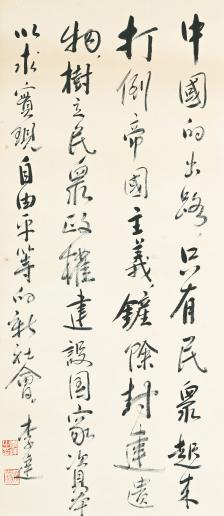 中國的出路，只有民衆起来
打倒帝國主義，鏟除封建遺
物，樹立民衆政權建設国家資本
以求實現自由平等的新社會。李達